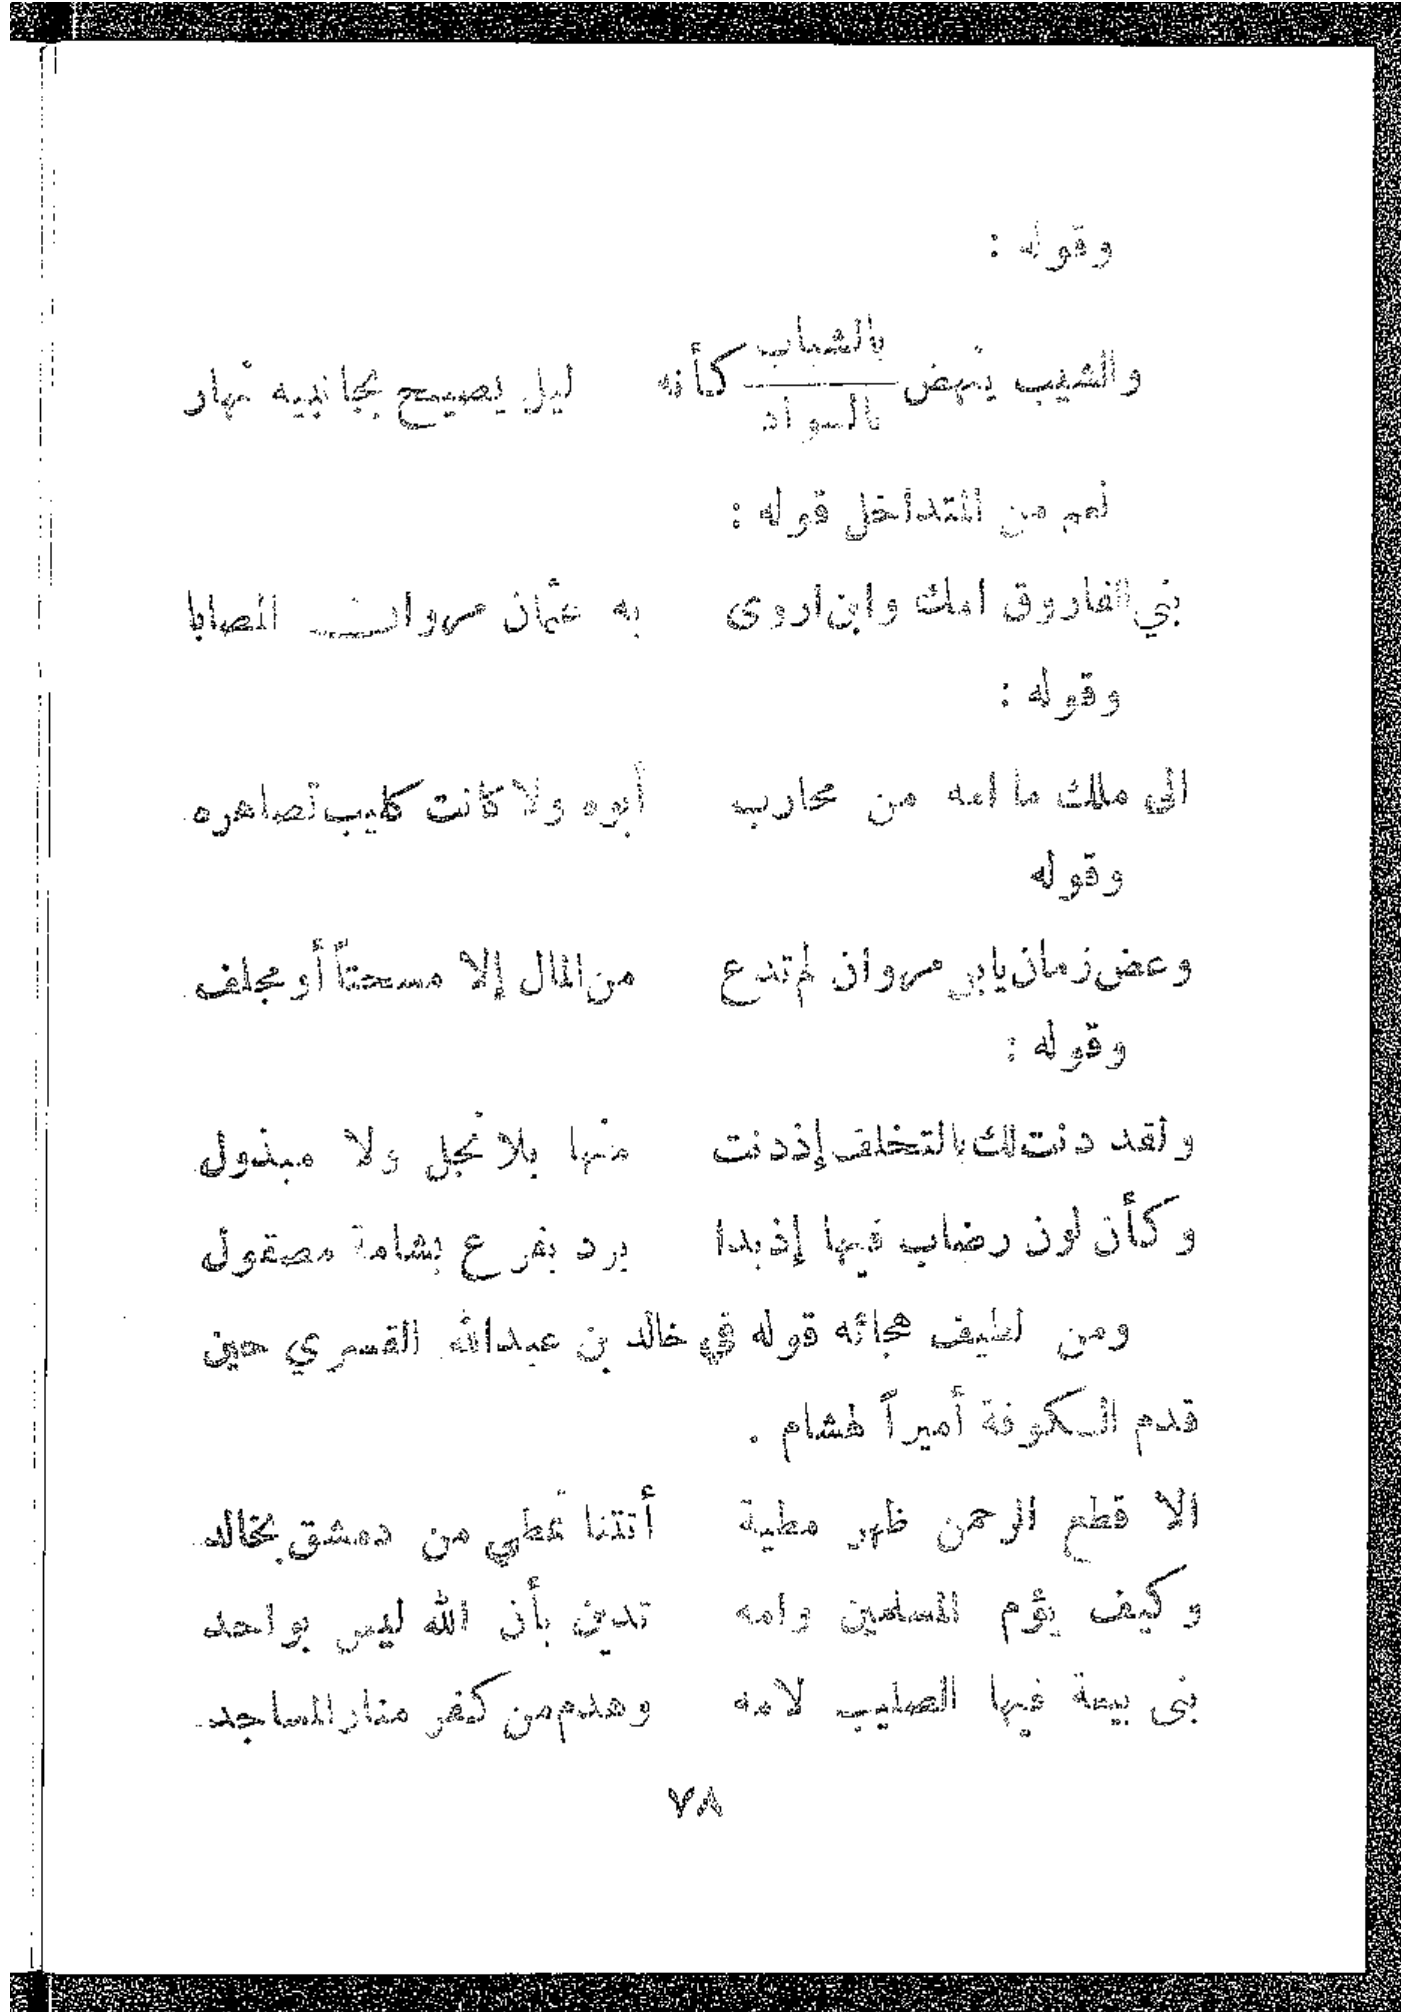 وقوله :
والشيب ينهض بالشباب كأنه ليل يصيح بجانبيه نهار
بالسواد
نعم من المتداخل قوله :
بني الفاروق امك وابن اروى به عثمان مروان المصابا
وقوله :
الى ملك ما امه من محارب أبوه ولا كانت كليب تصاهره
وقوله
وعض زمان يابن مروان لم تدع من المال إلا مسحتاً أو مجلف
وقوله :
ولقد دنت لك بالتخلف إذ دنت منها بلا نجل ولا مبذول
وكأن لون رضاب فيها إذ بدا برد بفرع بشامة مصقول
ومن لطيف هجائه قوله في خالد بن عبدالله القسري حين
قدم الكوفة أميراً لهشام .
الا قطع الرحمن ظهر مطية أتتنا تمطي من دمشق بخالد
وكيف يؤم المسلمين وامه تدين بأن الله ليس بواحد
بنى بيعة فيها الصليب لامه وهدم من كفر منار المساجد
٧٨